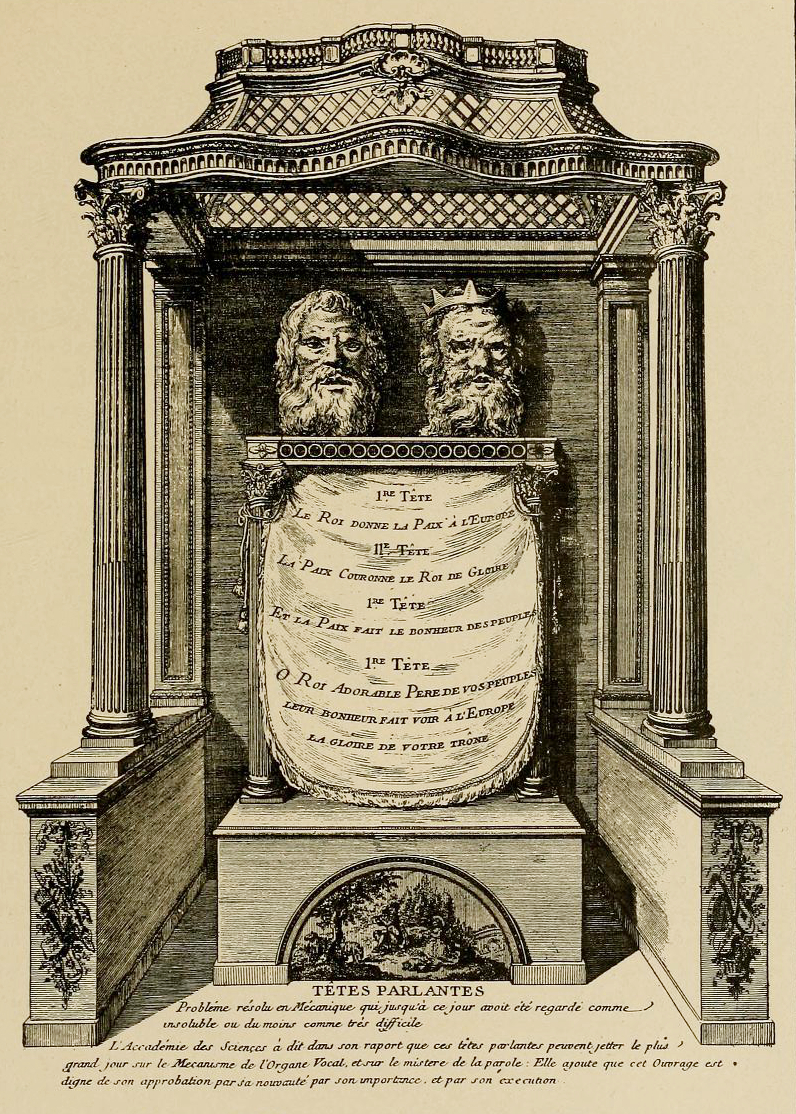 1RE TÊTE
LE ROI DONNE LA PAIX À L'EUROPE
IIE TÊTE
LA PAIX COURONNE LE ROI DE GLOIRE
1RE TÊTE
ET LA PAIX FAIT LE BONHEUR DES PEUPLES
1RE TÊTE
O ROI ADORABLE PERE DE VOS PEUPLES
LEUR BONHEUR FAIT VOIR A L'EUROPE
LA GLOIRE DE VOTRE TRÔNE
TÊTES PARLANTES
Probléme résolu en Mécanique qui jusqu'à ce jour avoit été regardé comme
insoluble ou du moins comme trés difficile
L'Accadémie des Sciences à dit dans son raport que ces têtes parlantes peuvent jetter le plus
grand jour sur le Mecanisme de l'Organe Vocal, et sur le mistere de la parole : Elle ajoute que cet Ouvrage est
digne de son approbation par sa nouvauté par son importance, et par son éxecution.